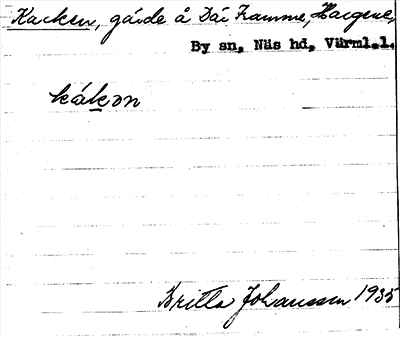 Kacken, gärde å Där Framme, Hargene,
By sn, Näs hd, Värml.l.
kákən
Britta Johansson 1935